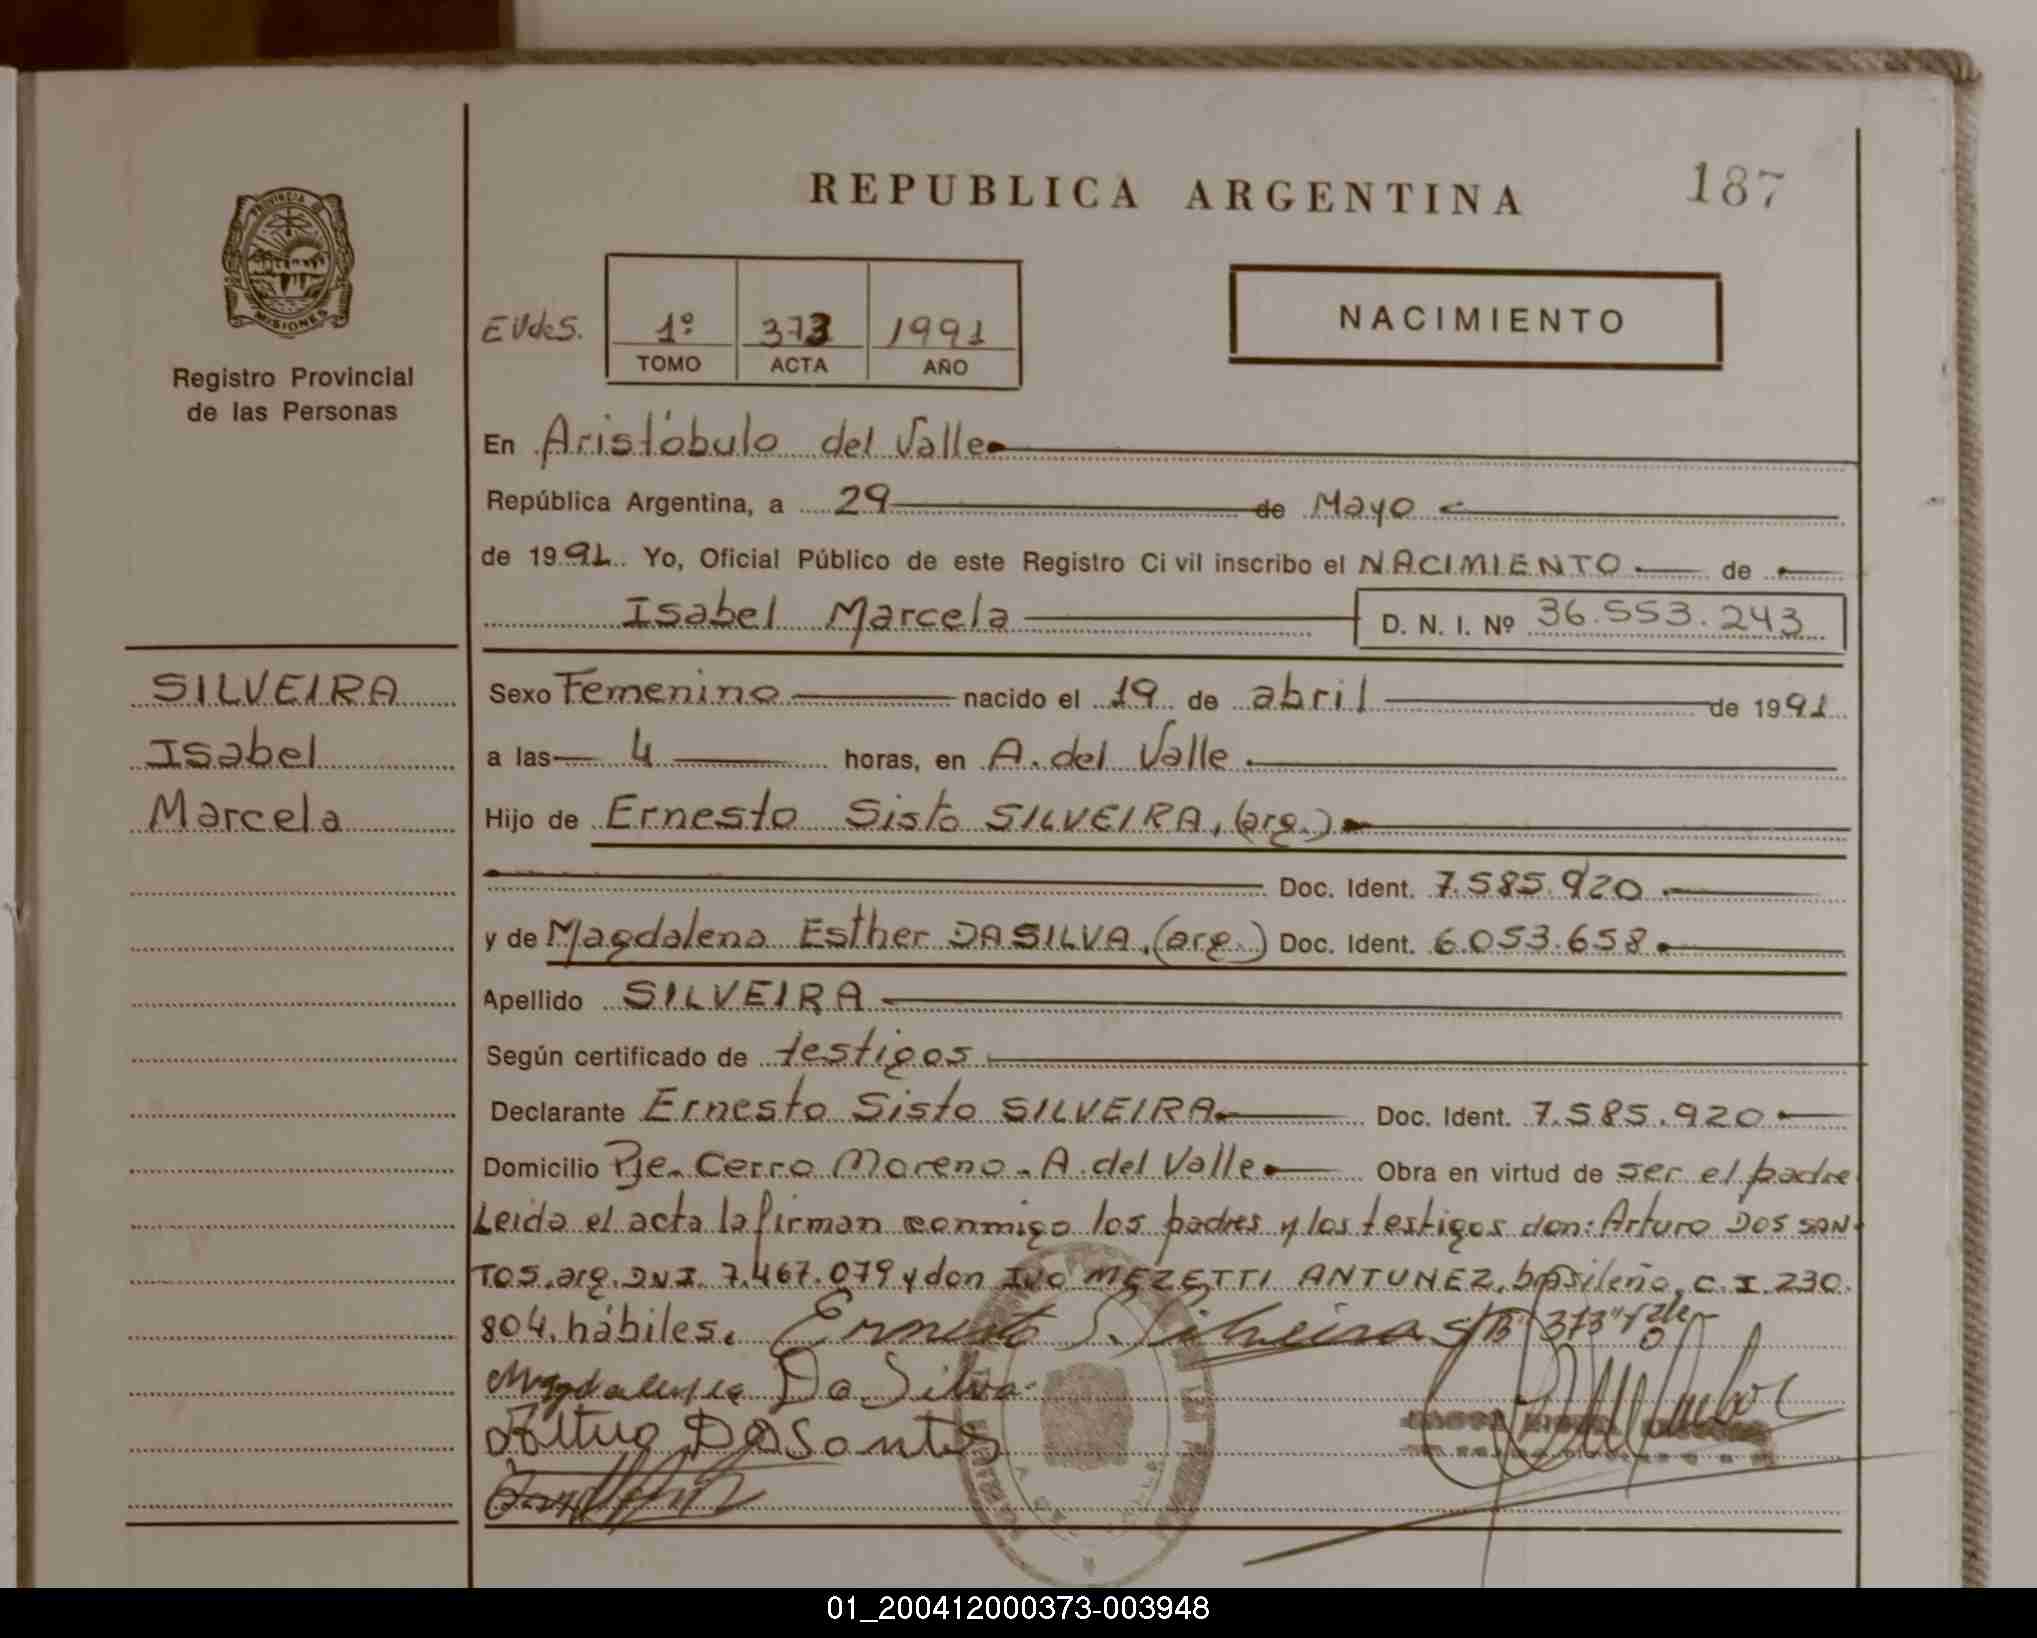 REPUBLICA ARGENTINA
187
PROVINCIA DE
MISIONES
Registro Provincial
de las Personas
EVdeS.
1º 373 1991
TOMO ACTA AÑO
NACIMIENTO
En Aristóbulo del Valle
República Argentina, a 29 de Mayo
de 1991. Yo, Oficial Público de este Registro Civil inscribo el NACIMIENTO de
Isabel Marcela D. N. I. Nº 36.553.243
SILVEIRA
Isabel
Marcela
Sexo Femenino nacido el 19 de abril de 1991
a las 4 horas, en A. del Valle
Hijo de Ernesto Sisto SILVEIRA, (arg.)
Doc. Ident. 7.585.920
y de Magdalena Esther DASILVA, (arg.) Doc. Ident. 6.053.658
Apellido SILVEIRA
Según certificado de testigos
Declarante Ernesto Sisto SILVEIRA Doc. Ident. 7.585.920
Domicilio Pje. Cerro Moreno - A. del Valle Obra en virtud de ser el padre
Leida el acta la firman conmigo los padres y los testigos don: Arturo DOS SAN-
TOS, arg. DNI. 7.467.079 y don IVO MEZETTI ANTUNEZ, brasileño, C.I. 230.
804, hábiles. Ernesto S. Silveira S/B "373" Vale
Magdalena Da Silva
Altuo Dos Santos
01_200412000373-003948